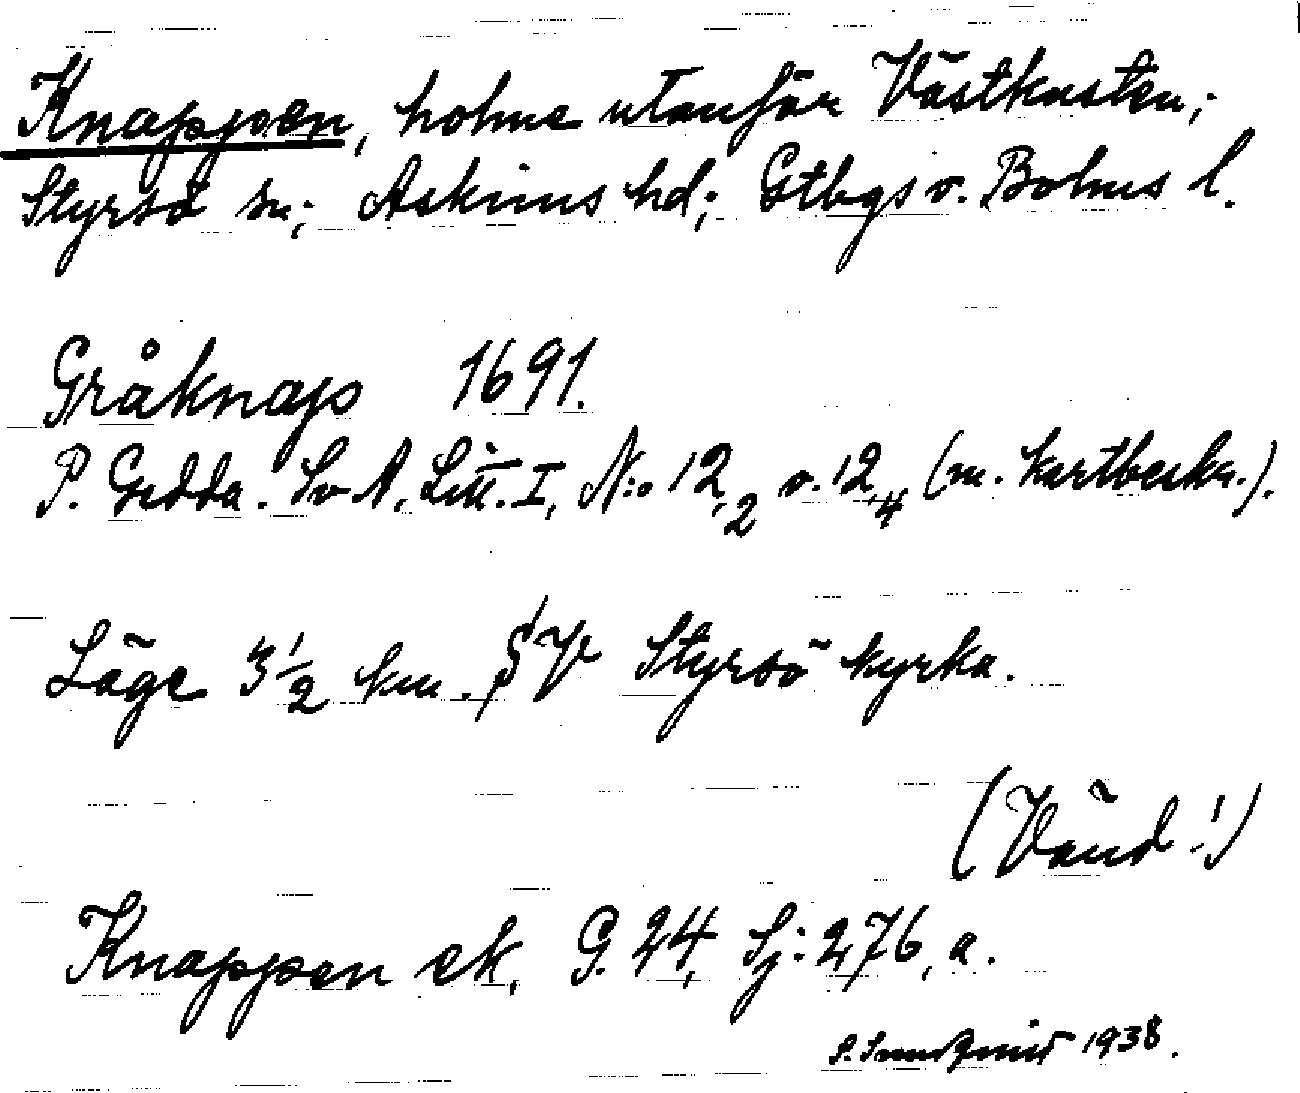 Knappen, holme utanför Västkusten;
Styrsö sn; Askims hd; Gtbgs o. Bohus l.
Gråknap 1691.
P. Gedda. Sv A, Litt. I, N:o 12,2 o. 12,4 (m. kartbeskr.).
Läge 3 1/2 km. SV Styrsö kyrka.
(Vänd!)
Knappen ek, G. 24, Sj: 276, a.
1938.